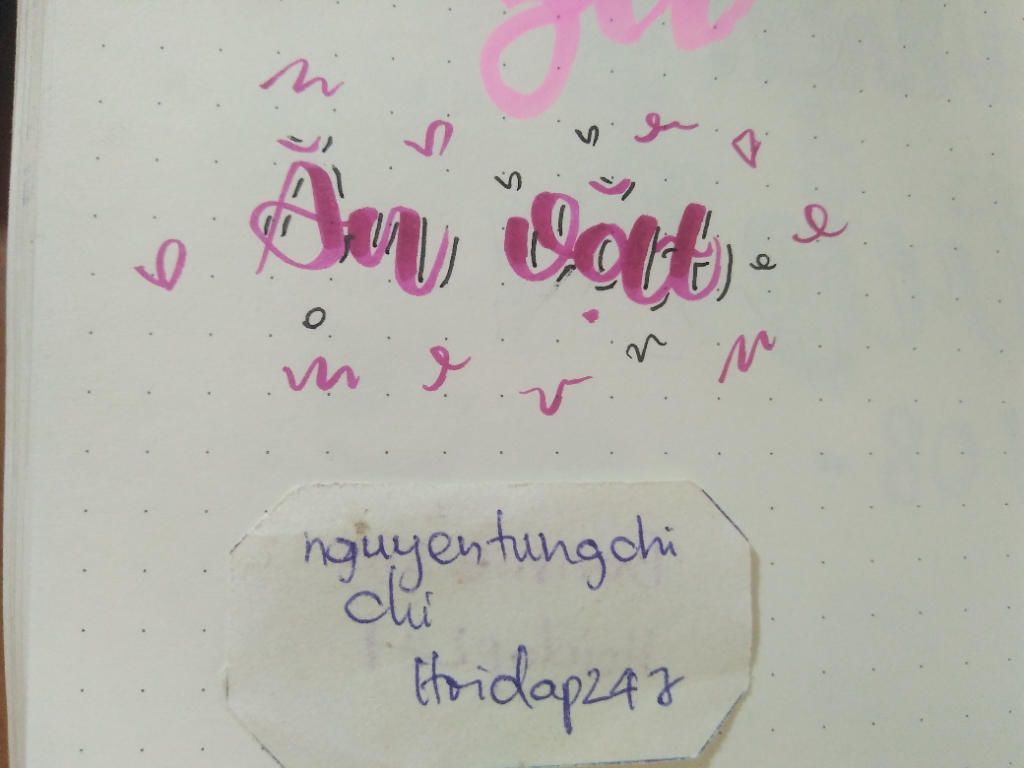 Ăn vặt
nguyentungchi
Chi
Hoidap247